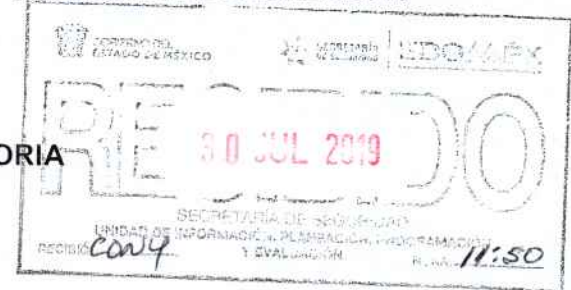 GOBIERNO DEL
ESTADO DE MÉXICO
SECRETARÍA
DE SEGURIDAD
EDOMÉX
ORIA
RECIBIDO
30 JUL 2019
SECRETARÍA DE SEGURIDAD
UNIDAD DE INFORMACIÓN, PLANEACIÓN, PROGRAMACIÓN
Y EVALUACIÓN
RECIBIÓ CONY
HORA 11:50